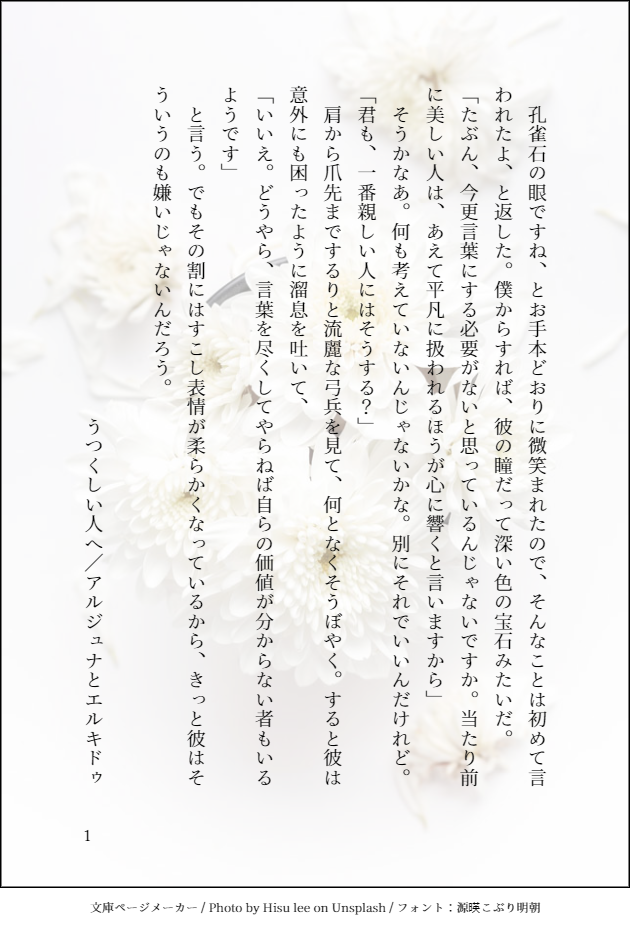 孔雀石の眼ですね、とお手本どおりに微笑まれたので、そんなことは初めて言
われたよ、と返した。僕からすれば、彼の瞳だって深い色の宝石みたいだ。
「たぶん、今更言葉にする必要がないと思っているんじゃないですか。当たり前
に美しい人は、あえて平凡に扱われるほうが心に響くと言いますから」
　そうかなあ。何も考えていないんじゃないかな。別にそれでいいんだけれど。
「君も、一番親しい人にはそうする？」
　肩から爪先まですらりと流麗な弓兵を見て、何となくそうぼやく。すると彼は
意外にも困ったように溜息を吐いて、
「いいえ。どうやら、言葉を尽くしてやらねば自らの価値が分からない者もいる
ようです」
　と言う。でもその割にはすこし表情が柔らかくなっているから、きっと彼はそ
ういうのも嫌いじゃないんだろう。
うつくしい人へ／アルジュナとエルキドゥ
1
文庫ページメーカー / Photo by Hisu lee on Unsplash / フォント：源暎こぶり明朝